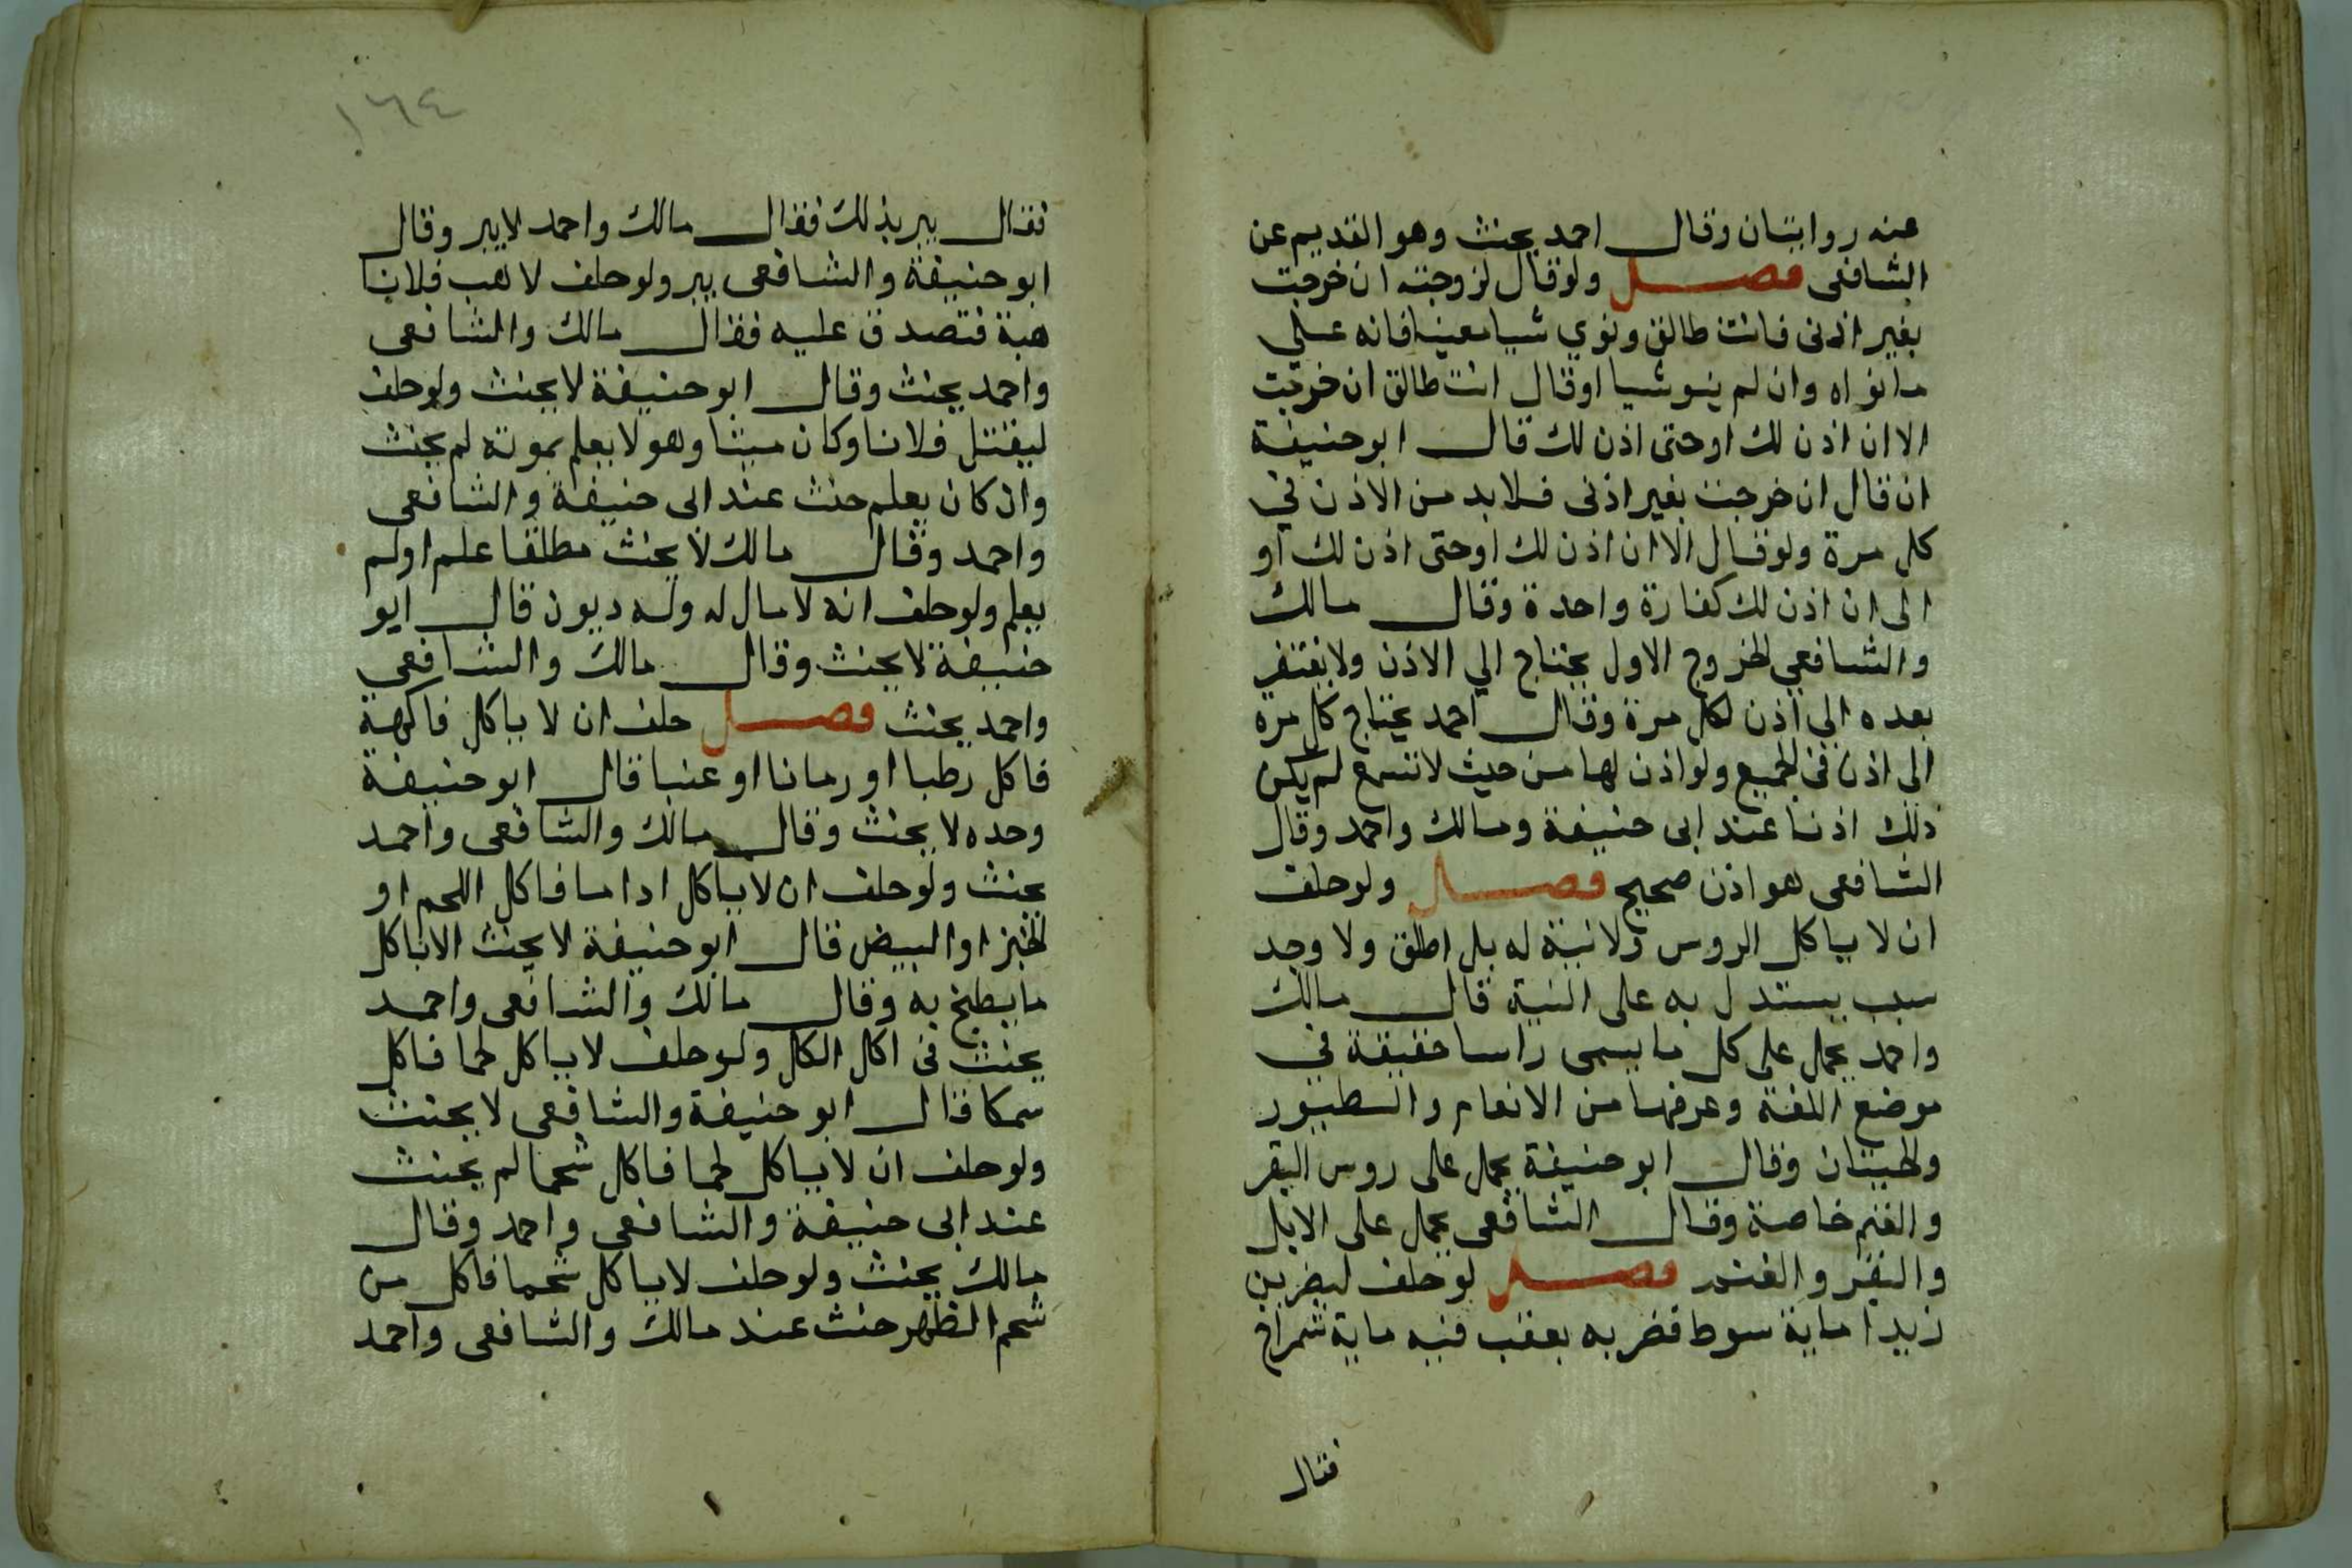 عنه روايتان وقال احمد يحنث وهو القديم عن
الشافعى فصل ولو قال لزوجته ان خرجت
بغير اذنى فانت طالق ونوي شيا معينا فانه علي
ما نواه وان لم ينو شيا او قال انت طالق ان خرجت
الا ان اذن لك او حتى اذن لك قال ابو حنيفة
ان قال ان خرجت بغير اذنى فلا بد من الاذن في
كل مرة ولو قال الا ان اذن لك او حتى اذن لك او
الى ان اذن لك كفارة واحدة وقال مالك
والشافعي الخروج الاول يحتاج الي الاذن ولا يفتقر
بعده الي اذن لكل مرة وقال احمد يحتاج كل مرة
الى اذن فى الجميع ولو اذن لها من حيث لا تسمع لم يكن
ذلك اذنا عند ابى حنيفة ومالك واحمد وقال
الشافعى هو اذن صحيح فصل ولو حلف
ان لا ياكل الروس ولا نية له بل اطلق ولا وجد
سبب يستدل به على النية قال مالك
واحمد يحمل على كل ما يسمى راسا حقيقة في
موضع اللغة وعرفها من الانعام والطيور
والحيتان وقال ابو حنيفة يحمل على روس البقر
والغنم خاصة وقال الشافعى يحمل على الابل
والبقر والغنم فصل لو حلف ليضربن
زيدا ماية سوط فضربه بعقب فيه ماية شمراخ
فقال
١٦٤
فقال يبر بذلك فقال مالك واحمد لا يبر وقال
ابو حنيفة والشافعى يبر ولو حلف لا هب فلانا
هبة فتصدق عليه فقال مالك والشافعى
واحمد يحنث وقال ابو حنيفة لا يحنث ولو حلف
ليقتل فلانا وكان ميتا وهو لا يعلم بموته لم يحنث
وان كان يعلم حنث عند ابى حنيفة والشافعى
واحمد وقال مالك لا يحنث مطلقا علم او لم
يعلم ولو حلف انه لا مال له وله ديون قال ابو
حنيفة لا يحنث وقال مالك والشافعي
واحمد يحنث فصل حلف ان لا ياكل فاكهة
فاكل رطبا او رمانا او عنبا قال ابو حنيفة
وحده لا يحنث وقال مالك والشافعى واحمد
يحنث ولو حلف ان لا ياكل اداما فاكل اللحم او
الخبز او البيض قال ابو حنيفة لا يحنث الا باكل
ما يطبخ به وقال مالك والشافعى واحمد
يحنث فى اكل الكل ولو حلف لا ياكل لحما فاكل
سمكا قال ابو حنيفة والشافعى لا يحنث
ولو حلف ان لا ياكل لحما فاكل شحما لم يحنث
عند ابى حنيفة والشافعى واحمد وقال
مالك يحنث ولو حلف لا ياكل شحما فاكل من
شحم الظهر حنث عند مالك والشافعى واحمد